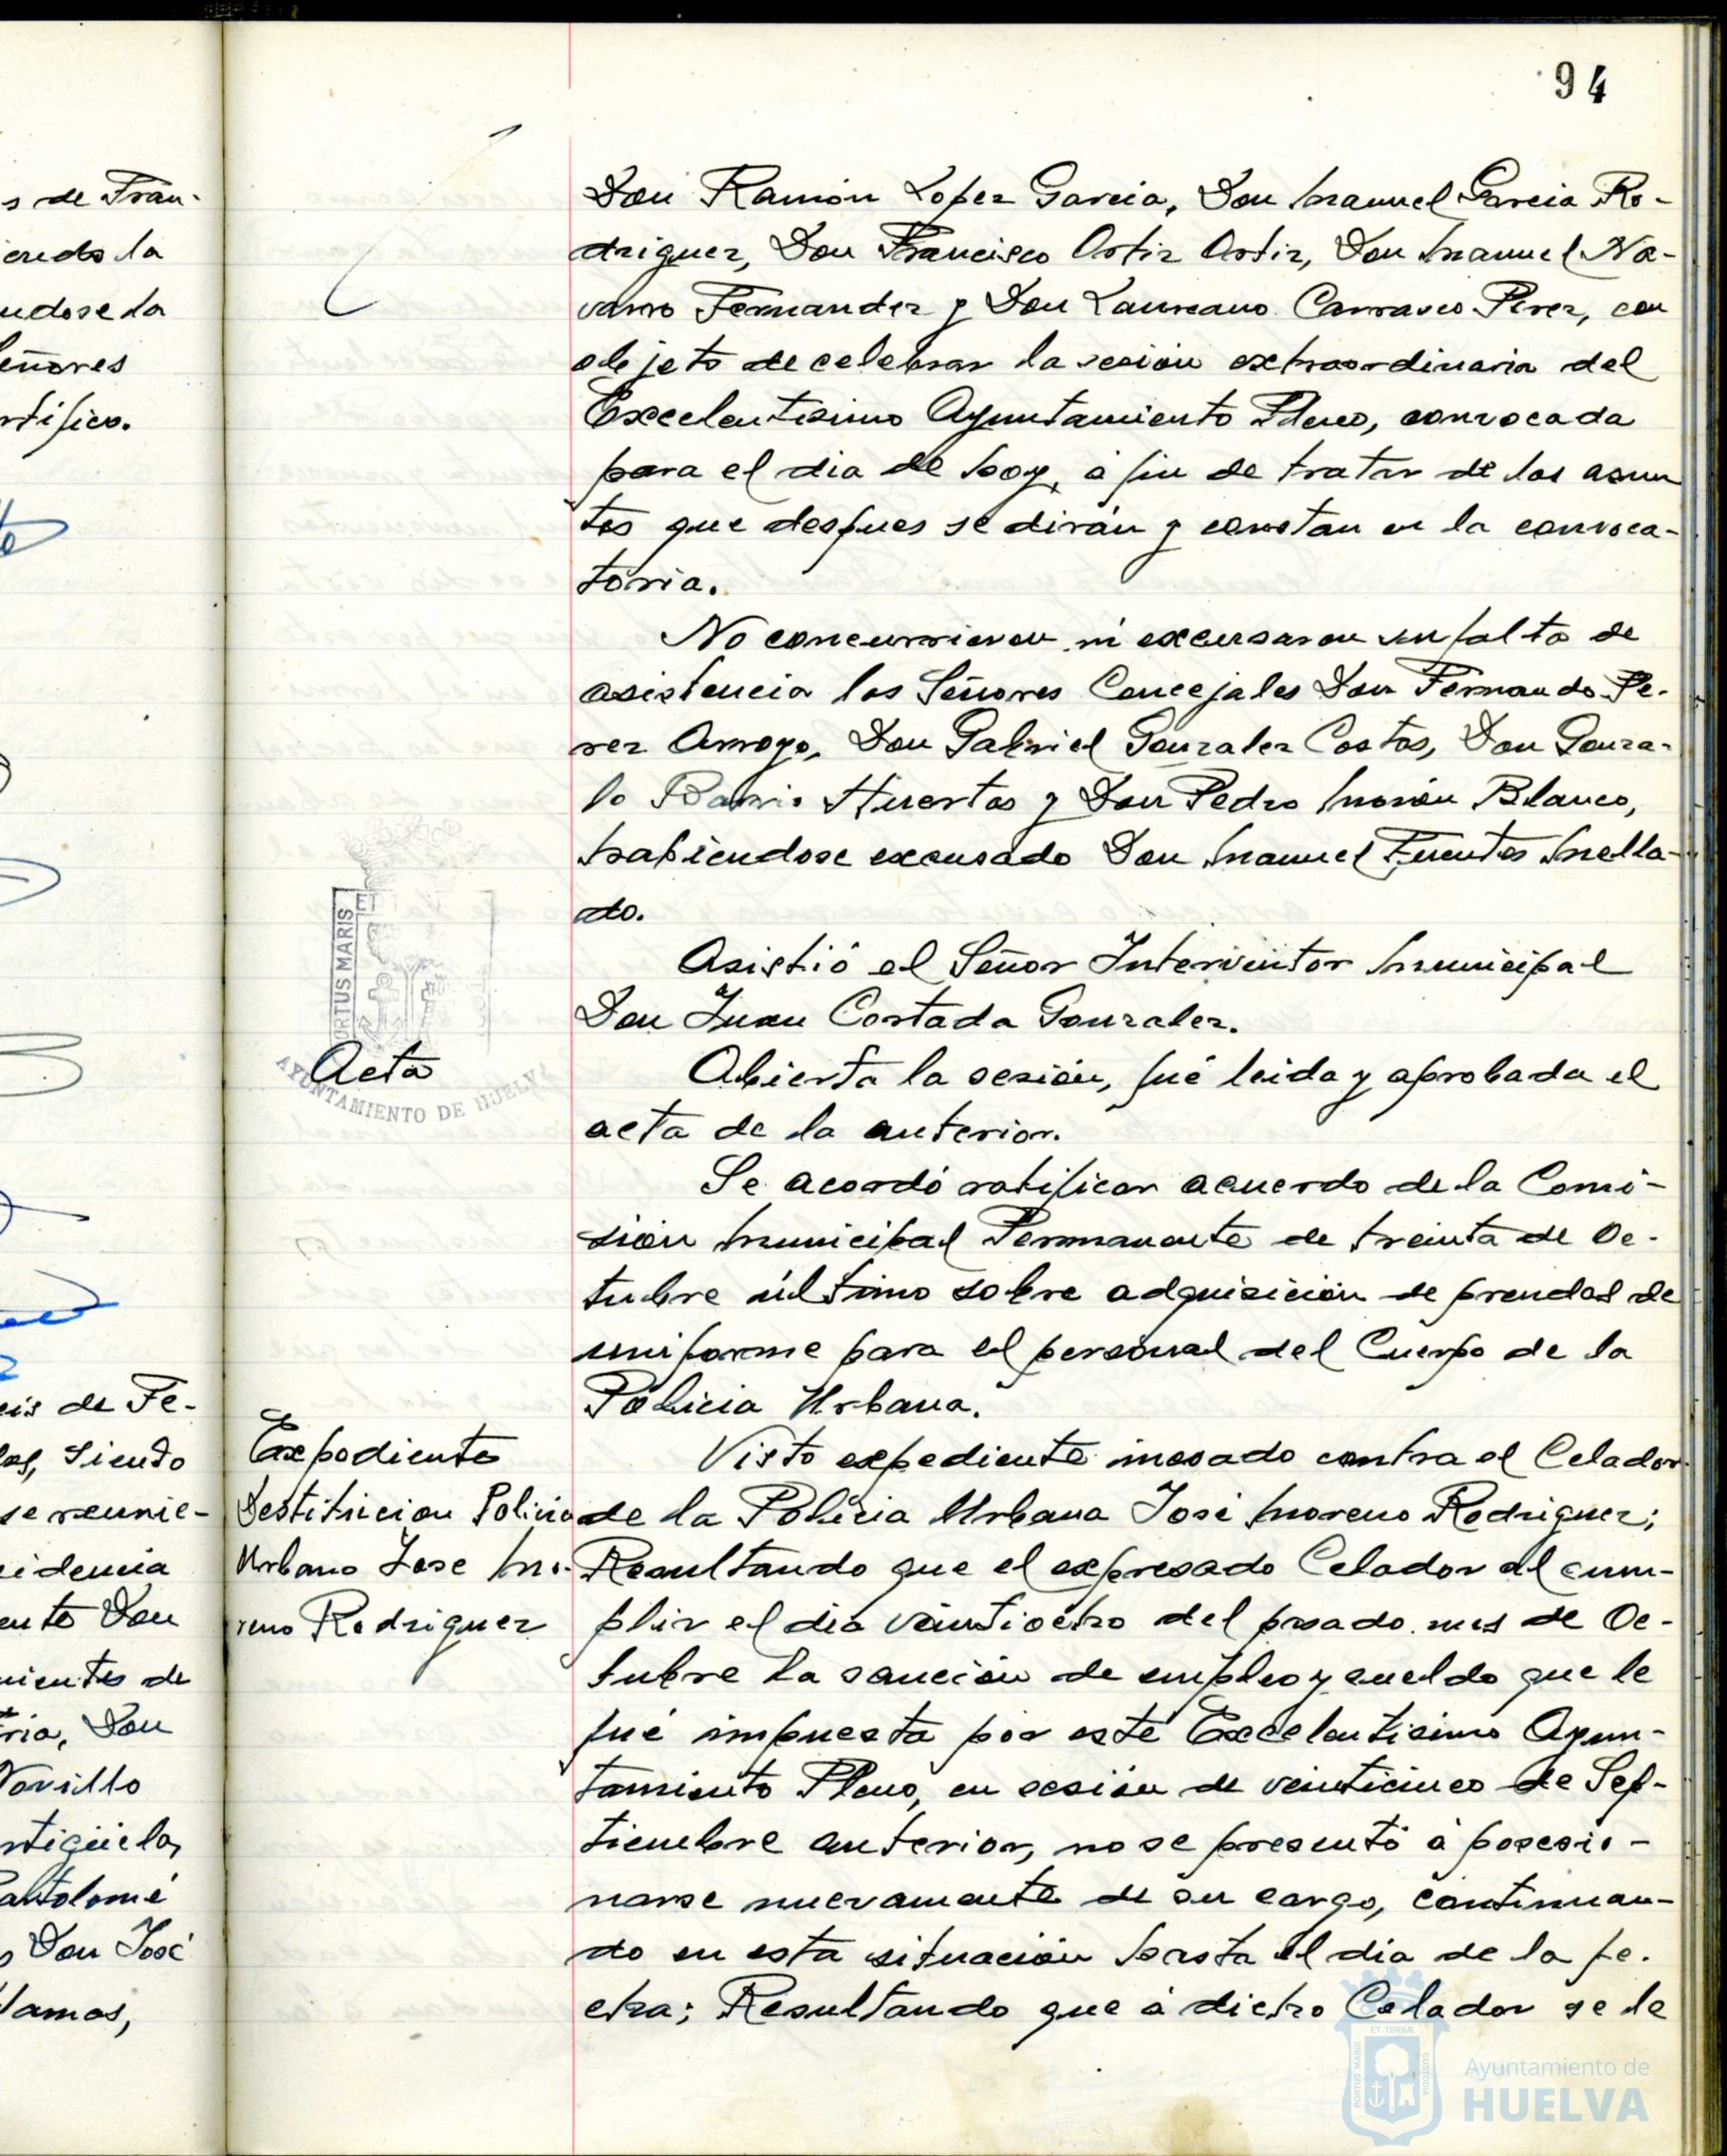 94
s de Fran-
endo la
ndose la
eñores
rtifico.
eis de Fe-
las, siendo
se reunie-
sidencia
ente Don
nientes de
ria, Don
Novillo
rtigüela,
artolomé
s Don José
lamas,
Don Ramón Lopez Garcia, Don Manuel Garcia Ro-
driguez, Don Francisco Ortiz Ortiz, Don Manuel Na-
varro Fernandez y Don Laureano Carrasco Perez, con
objeto de celebrar la sesión extraordinaria del
Excelentisimo Ayuntamiento Pleno, convocada
para el dia de hoy, á fin de tratar de los asun
tos que despues se dirán y constan en la convoca-
toria.
No concurrieron ni excusaron su falta de
asistencia los Señores Concejales Don Fernando Pe-
rez Arroyo, Don Gabriel Gonzalez Costas, Don Gonza-
lo Barrio Huertas y Don Pedro Morón Blanco,
habiendose excusado Don Manuel Fuentes Mella-
do.
Asistió el Señor Interventor Municipal
Don Juan Costada Gonzalez.
Acta
Abierta la sesión, fué leida y aprobada el
acta de la anterior.
Se acordó ratificar acuerdo de la Comi-
sión Municipal Permanente de treinta de Oc-
tubre último sobre adquisición de prendas de
uniforme para el personal del Cuerpo de la
Policia Urbana.
Expediente
Destitucion Policia
Urbano Jose Mo-
reno Rodriguez
Visto expediente incoado contra el Celador
de la Policia Urbana José Moreno Rodriguez;
Resultando que el expresado Celador al cum-
plir el dia veintiocho del pasado mes de Oc-
tubre la sanción de empleo y sueldo que le
fué impuesta por este Excelentisimo Ayun-
tamiento Pleno, en sesión de veinticinco de Sep-
tiembre anterior, no se presentó á posesio-
narse nuevamente de su cargo, continuan-
do en esta situación hasta el dia de la fe-
cha; Resultando que á dicho Celador se le
PORTUS MARIS
ET
AYUNTAMIENTO DE HUELVA
ET TERRÆ
PORTUS MARIS
CUSTODIA
Ayuntamiento de
HUELVA